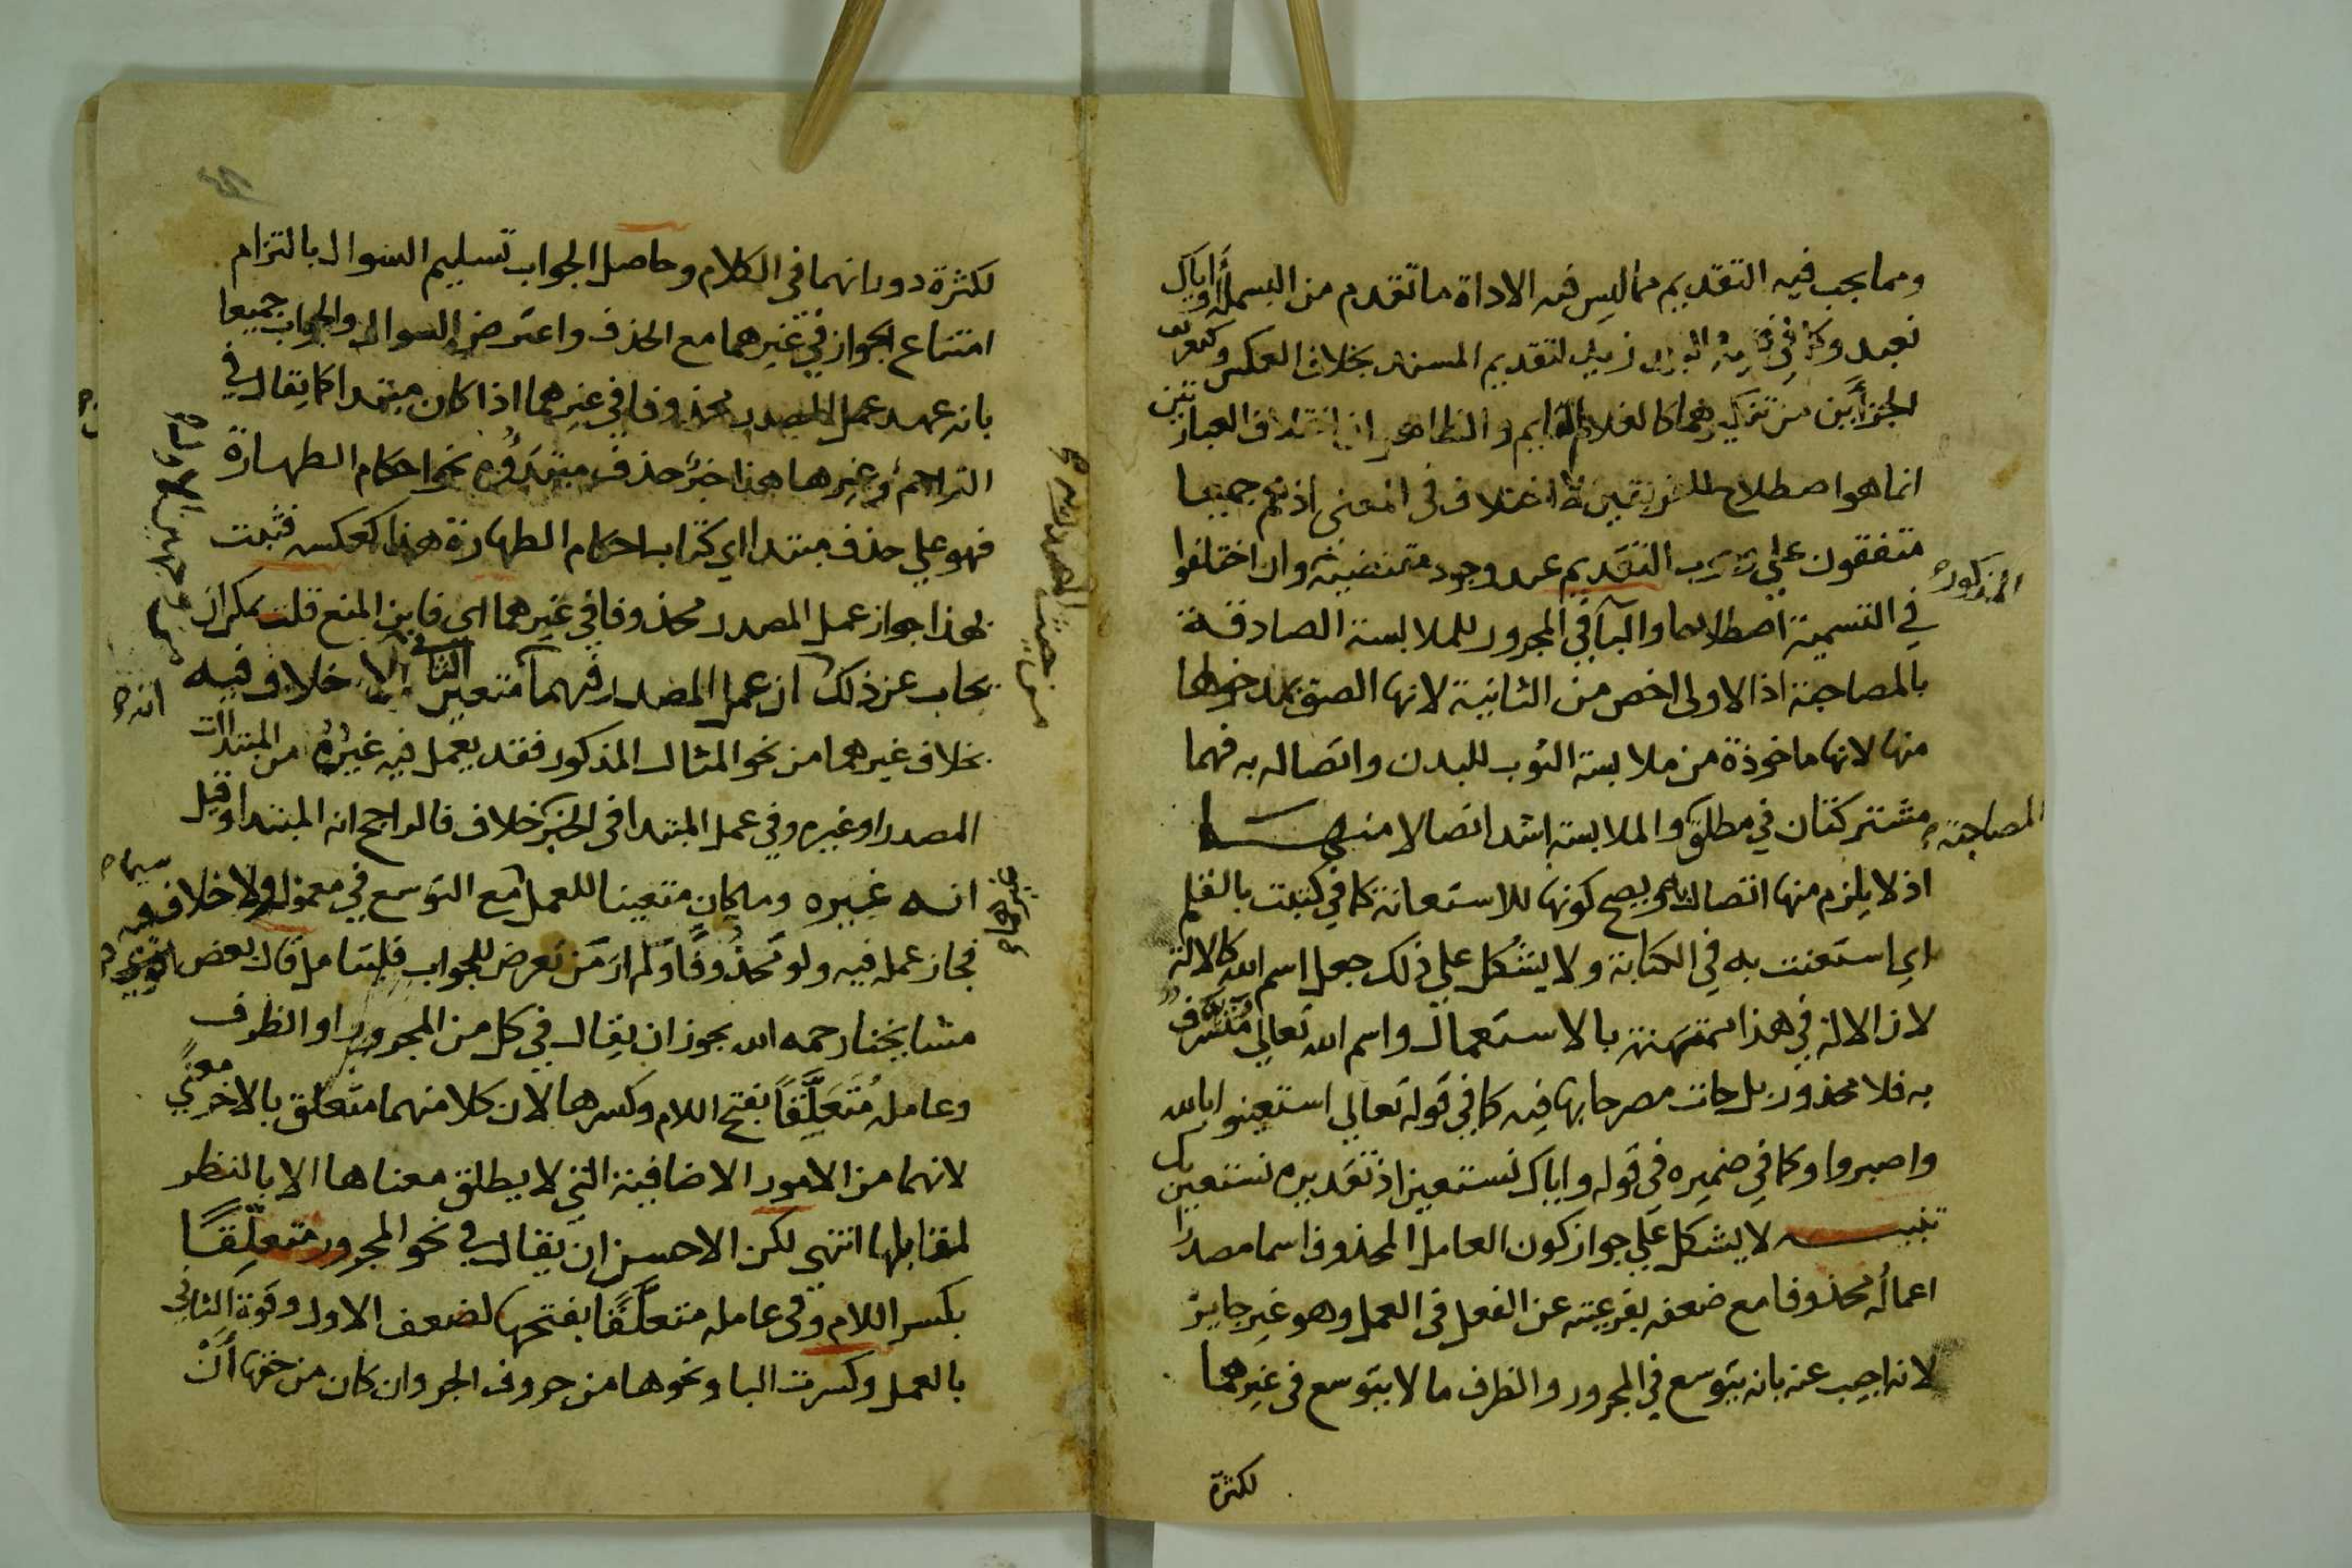 ومما يجب فيه التقديم مما ليس فيه الاداة ما تقدم من البسملة واياك
نعبد وكما في زيد لتقديم المسند بخلاف العكس وكتعريف
الجزأين من تنكيرهما كالغلام القايم والظاهر ان اختلاف العبارتين
انما هو اصطلاح للفريقين لا اختلاف في المعنى اذ هم جميعا
متفقون على التقديم عند وجود مقتضيه وان اختلفوا
المذكورة
في التسمية اصطلاحا والبا في المجرور للملابسة الصادقة
بالمصاحبة اذ الاولى اخص من الثانية لانها الصق بمدخولها
منها لانها ماخوذة من ملابسة الثوب للبدن واتصاله به فهما
مشتركتان في مطلق والملابسة اشد اتصالا منها
المصاحبة
اذ لا يلزم منها اتصال ويصح كونها للاستعانة كما في كتبت بالقلم
اي استعنت به في الكتابة ولا يشكل على ذلك جعل اسم الله كالالة
لان الالة في هذا ممتهنة بالاستعمال واسم الله تعالى
به فلا محذور بل جات مصرحا بها فيه كما في قوله تعالى استعينوا بالله
واصبروا وكما في ضميره في قوله واياك نستعين اذ تقديره نستعين بك
تنبيه لا يشكل على جواز كون العامل المحذوف اسما مصدرا
اعماله محذوفا مع ضعفه بفرعيته عن الفعل في العمل وهو غير جايز
لانه اجيب عنه بانه يتوسع في المجرور والظرف ما لا يتوسع في غيرهما
لكثرة
لكثرة دورانهما في الكلام وحاصل الجواب تسليم السوال بالتزام
امتناع الجواز في غيرهما مع الحذف واعترض السوال والجواب جميعا
بانه عهد عمل المصدر محذوفا في غيرهما اذا كان مبتدا كما يقال في
التراجم وغيرها هذا خبر حذف مبتدؤه نحو احكام الطهارة
فهو على حذف مبتدا اي كتاب احكام الطهارة هذا كعكسه فثبت
بهذا جواز عمل المصدر محذوفا في غيرهما اي فاين المنع قلت يمكن ان
يجاب عن ذلك ان عمل المصدر فيهما متعين خلاف فيه
انه
بخلاف غيرهما من نحو المثال المذكور فقد يعمل فيه غيره من المبتدات
المصدر او غيره وفي عمل المبتدا في الخبر خلاف فالراجح انه المبتدا وقيل
انه غيره وما كان متعينا للعمل مع التوسع في معموله ولا خلاف فيه
فجاز عمله فيه ولو محذوفا ولم ار من تعرض للجواب فليتامل قال بعض
مشايخنا رحمه الله يجوز ان يقال في كل من المجرور او الظرف
وعامله متعلقا بفتح اللام وكسرها لان كلا منهما متعلق بالاخر معنى
لانهما من الامور الاضافية التي لا يطلق معناها الا بالنظر
لمقابلها انتهى لكن الاحسن ان يقال في نحو المجرور متعلقا
بكسر اللام وفي عامله متعلقا بفتحها لضعف الاول وقوة الثاني
بالعمل وكسرت البا ونحوها من حروف الجر وان كان من حقها أن